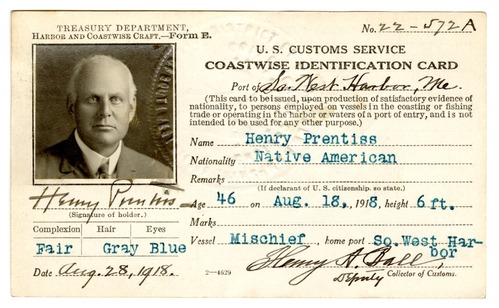 TREASURY DEPARTMENT,
HARBOR AND COASTWISE CRAFT.—FORM E.
No. 22-572A
U. S. CUSTOMS SERVICE
COASTWISE IDENTIFICATION CARD
Port of So. West Harbor, Me.
(This card to be issued, upon production of satisfactory evidence of
nationality, to persons employed on vessels in the coasting or fishing
trade or operating in the harbor or waters of a port of entry, and is not
intended to be used for any other purpose.)
Name Henry Prentiss
Nationality Native American
Remarks
(If declarant of U. S. citizenship, so state.)
Henry Prentiss
(Signature of holder.)
Age 46 on Aug. 18, 1918, height 6 ft.
Complexion Hair Eyes
Marks
Fair Gray Blue
Vessel Mischief, home port So. West Har-
bor
Date Aug. 28, 1918.
2—4629
Henry A. Ball,
Deputy Collector of Customs.